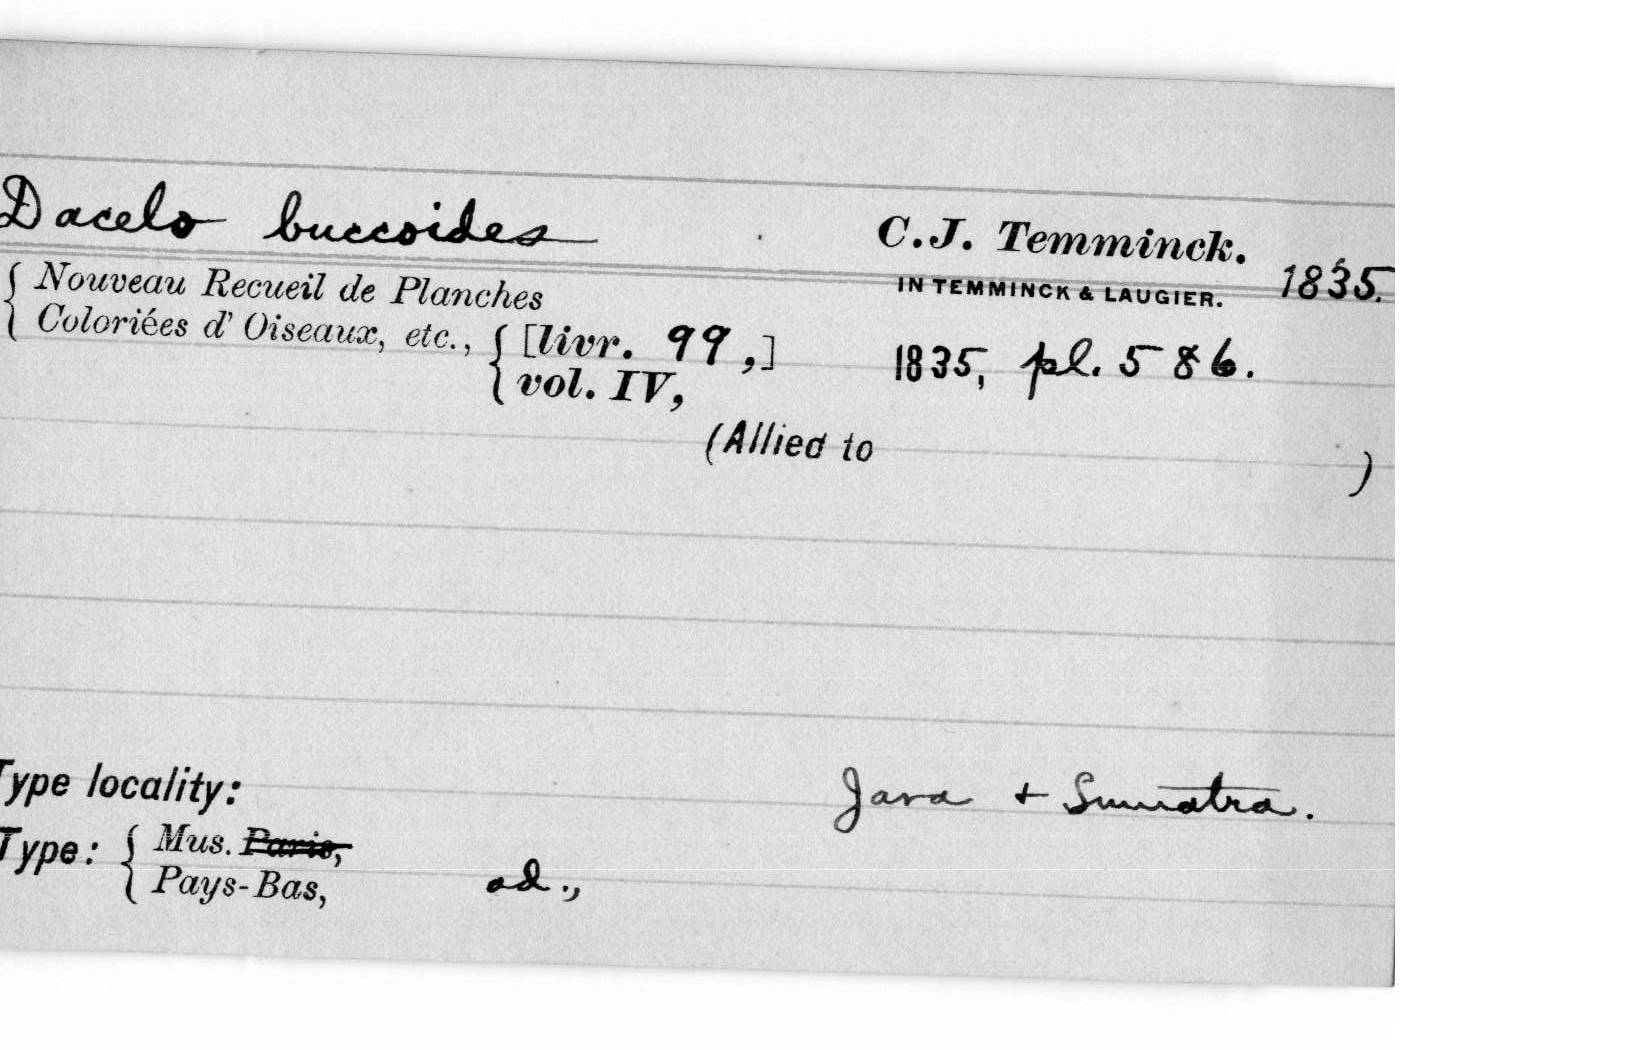 Dacelo buccoides C.J. Temminck.
IN TEMMINCK & LAUGIER. 1835.
{ Nouveau Recueil de Planches
{ Coloriées d' Oiseaux, etc., { [livr. 99,] 1835, pl. 586.
{ vol. IV,
(Allied to )
Type locality: Java + Sumatra.
Type: { Mus. Paris,
{ Pays-Bas, ad.,